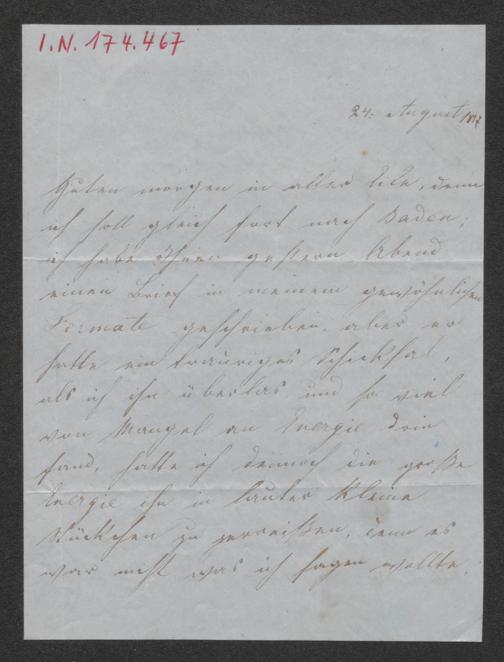 I.N. 174.467
24. August
Guten morgen in aller Eile, denn
ich soll gleich fort nach Baden;
ich habe Ihnen gestern Abend
einen Brief in meinem gewöhnlichen
Formate geschrieben, aber er
hatte ein trauriges Schicksal,
als ich ihn überlas und so viel
von Mangel an Energie drin
fand, hatte ich dennoch die große
Energie ihn in lauter kleine
Stückchen zu zerreißen, denn es
war nicht was ich sagen wollte.